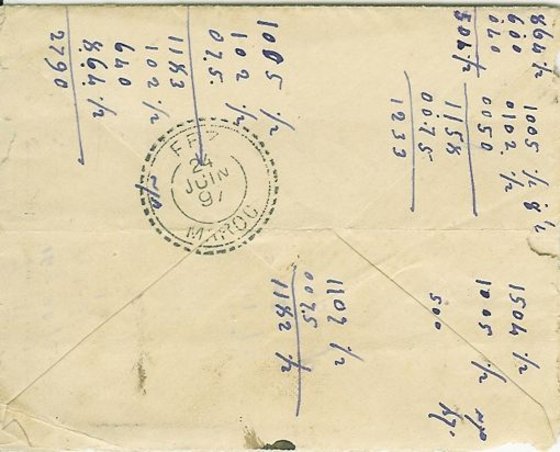 864 1/2
600
040
1504 1/2
1005 1/2 8 1/2
0102 1/2
0050
1158
0075
1233
1504 1/2
1005 1/2
500
1005 1/2
102 1/2
075
1183
102 1/2
640
864 1/2
2790
1107 1/2
0075
1182 1/2
FEZ
24
JUIN
97
MAROC